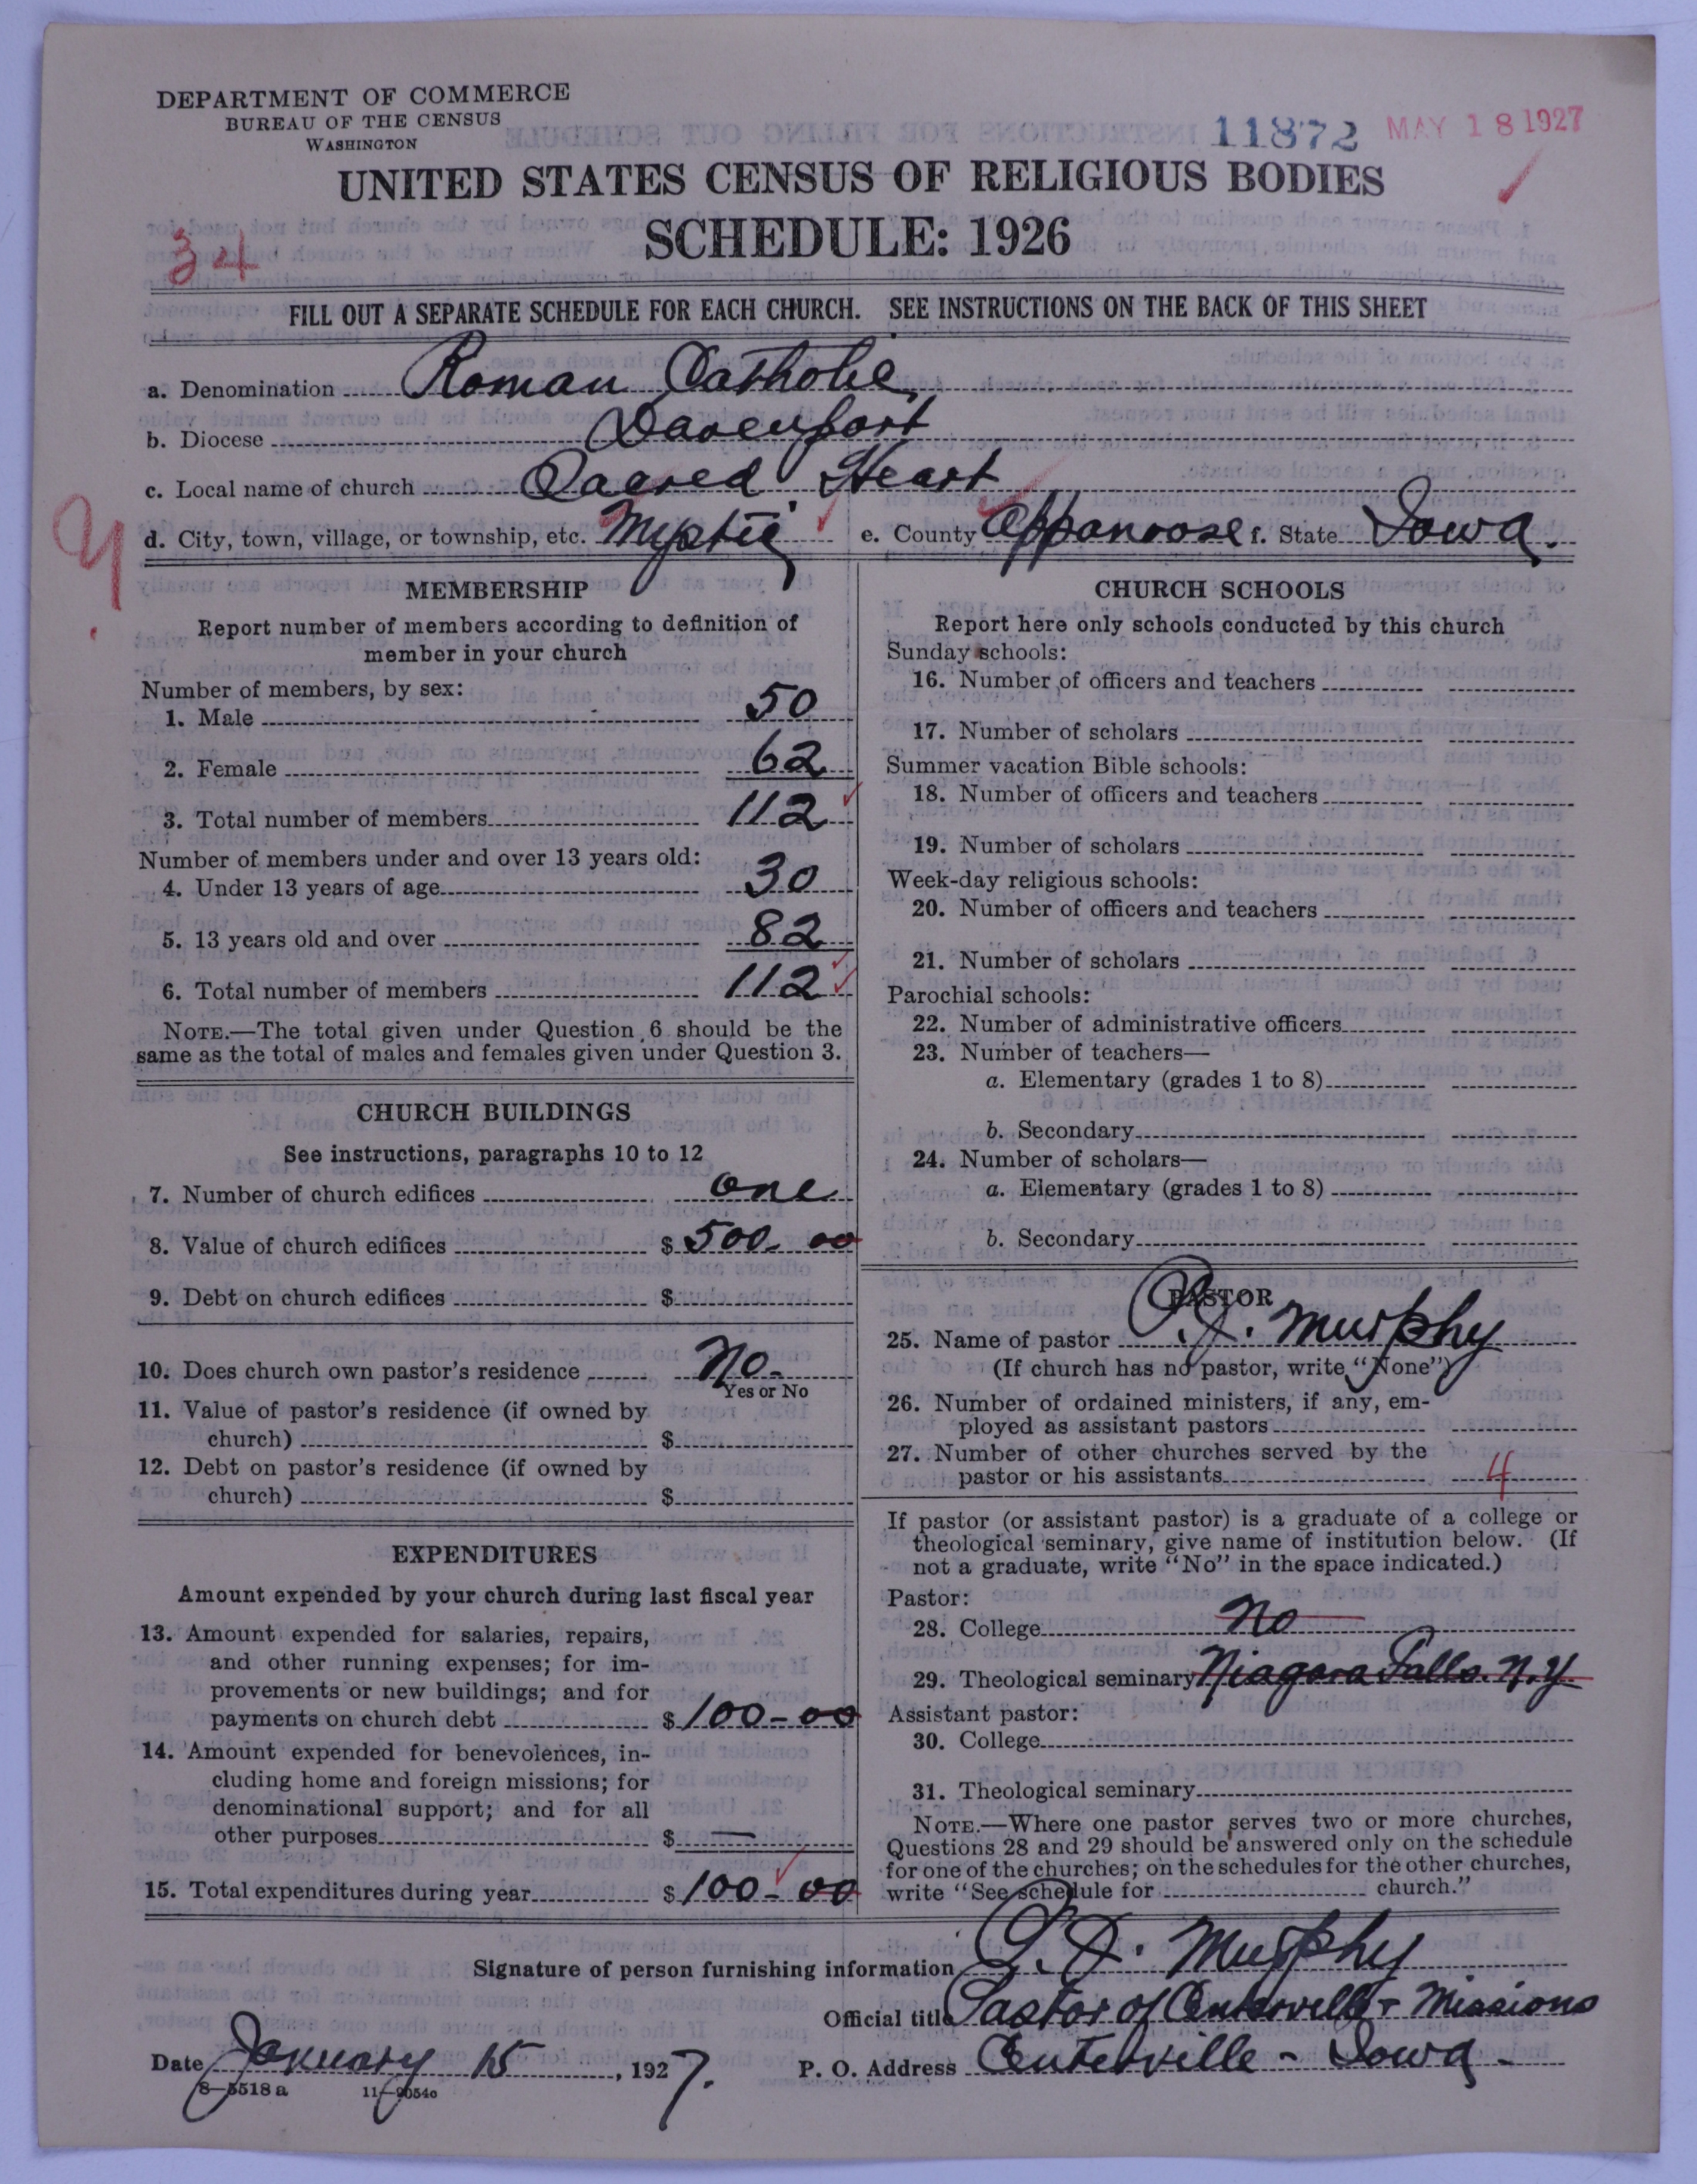 DEPARTMENT OF COMMERCE
BUREAU OF THE CENSUS
WASHINGTON
11872 MAY 18 1927
UNITED STATES CENSUS OF RELIGIOUS BODIES
SCHEDULE: 1926
34
FILL OUT A SEPARATE SCHEDULE FOR EACH CHURCH. SEE INSTRUCTIONS ON THE BACK OF THIS SHEET
a. Denomination Roman Catholic
b. Diocese Davenport
c. Local name of church Sacred Heart
d. City, town, village, or township, etc. Mystic e. County Appanoose f. State Iowa.
MEMBERSHIP
Report number of members according to definition of
member in your church
Number of members, by sex:
1. Male 50
2. Female 62
3. Total number of members 112
Number of members under and over 13 years old:
4. Under 13 years of age 30
5. 13 years old and over 82
6. Total number of members 112
NOTE.—The total given under Question 6 should be the
same as the total of males and females given under Question 3.
CHURCH BUILDINGS
See instructions, paragraphs 10 to 12
7. Number of church edifices one
8. Value of church edifices $ 500-00
9. Debt on church edifices $
10. Does church own pastor's residence No-
Yes or No
11. Value of pastor's residence (if owned by
church) $
12. Debt on pastor's residence (if owned by
church) $
EXPENDITURES
Amount expended by your church during last fiscal year
13. Amount expended for salaries, repairs,
and other running expenses; for im-
provements or new buildings; and for
payments on church debt $ 100-00
14. Amount expended for benevolences, in-
cluding home and foreign missions; for
denominational support; and for all
other purposes $ —
15. Total expenditures during year $ 100-00
CHURCH SCHOOLS
Report here only schools conducted by this church
Sunday schools:
16. Number of officers and teachers
17. Number of scholars
Summer vacation Bible schools:
18. Number of officers and teachers
19. Number of scholars
Week-day religious schools:
20. Number of officers and teachers
21. Number of scholars
Parochial schools:
22. Number of administrative officers
23. Number of teachers—
a. Elementary (grades 1 to 8)
b. Secondary
24. Number of scholars—
a. Elementary (grades 1 to 8)
b. Secondary
PASTOR
25. Name of pastor P.J. Murphy
(If church has no pastor, write "None")
26. Number of ordained ministers, if any, em-
ployed as assistant pastors
27. Number of other churches served by the
pastor or his assistants 4
If pastor (or assistant pastor) is a graduate of a college or
theological seminary, give name of institution below. (If
not a graduate, write "No" in the space indicated.)
Pastor:
28. College No
29. Theological seminary Niagara Falls. N.Y.
Assistant pastor:
30. College
31. Theological seminary
NOTE.—Where one pastor serves two or more churches,
Questions 28 and 29 should be answered only on the schedule
for one of the churches; on the schedules for the other churches,
write "See schedule for church."
Signature of person furnishing information P.J. Murphy
Official title Pastor of Centerville + Missions
Date January 15, 1927. P. O. Address Centerville - Iowa -
8-5518 a 11-9054c